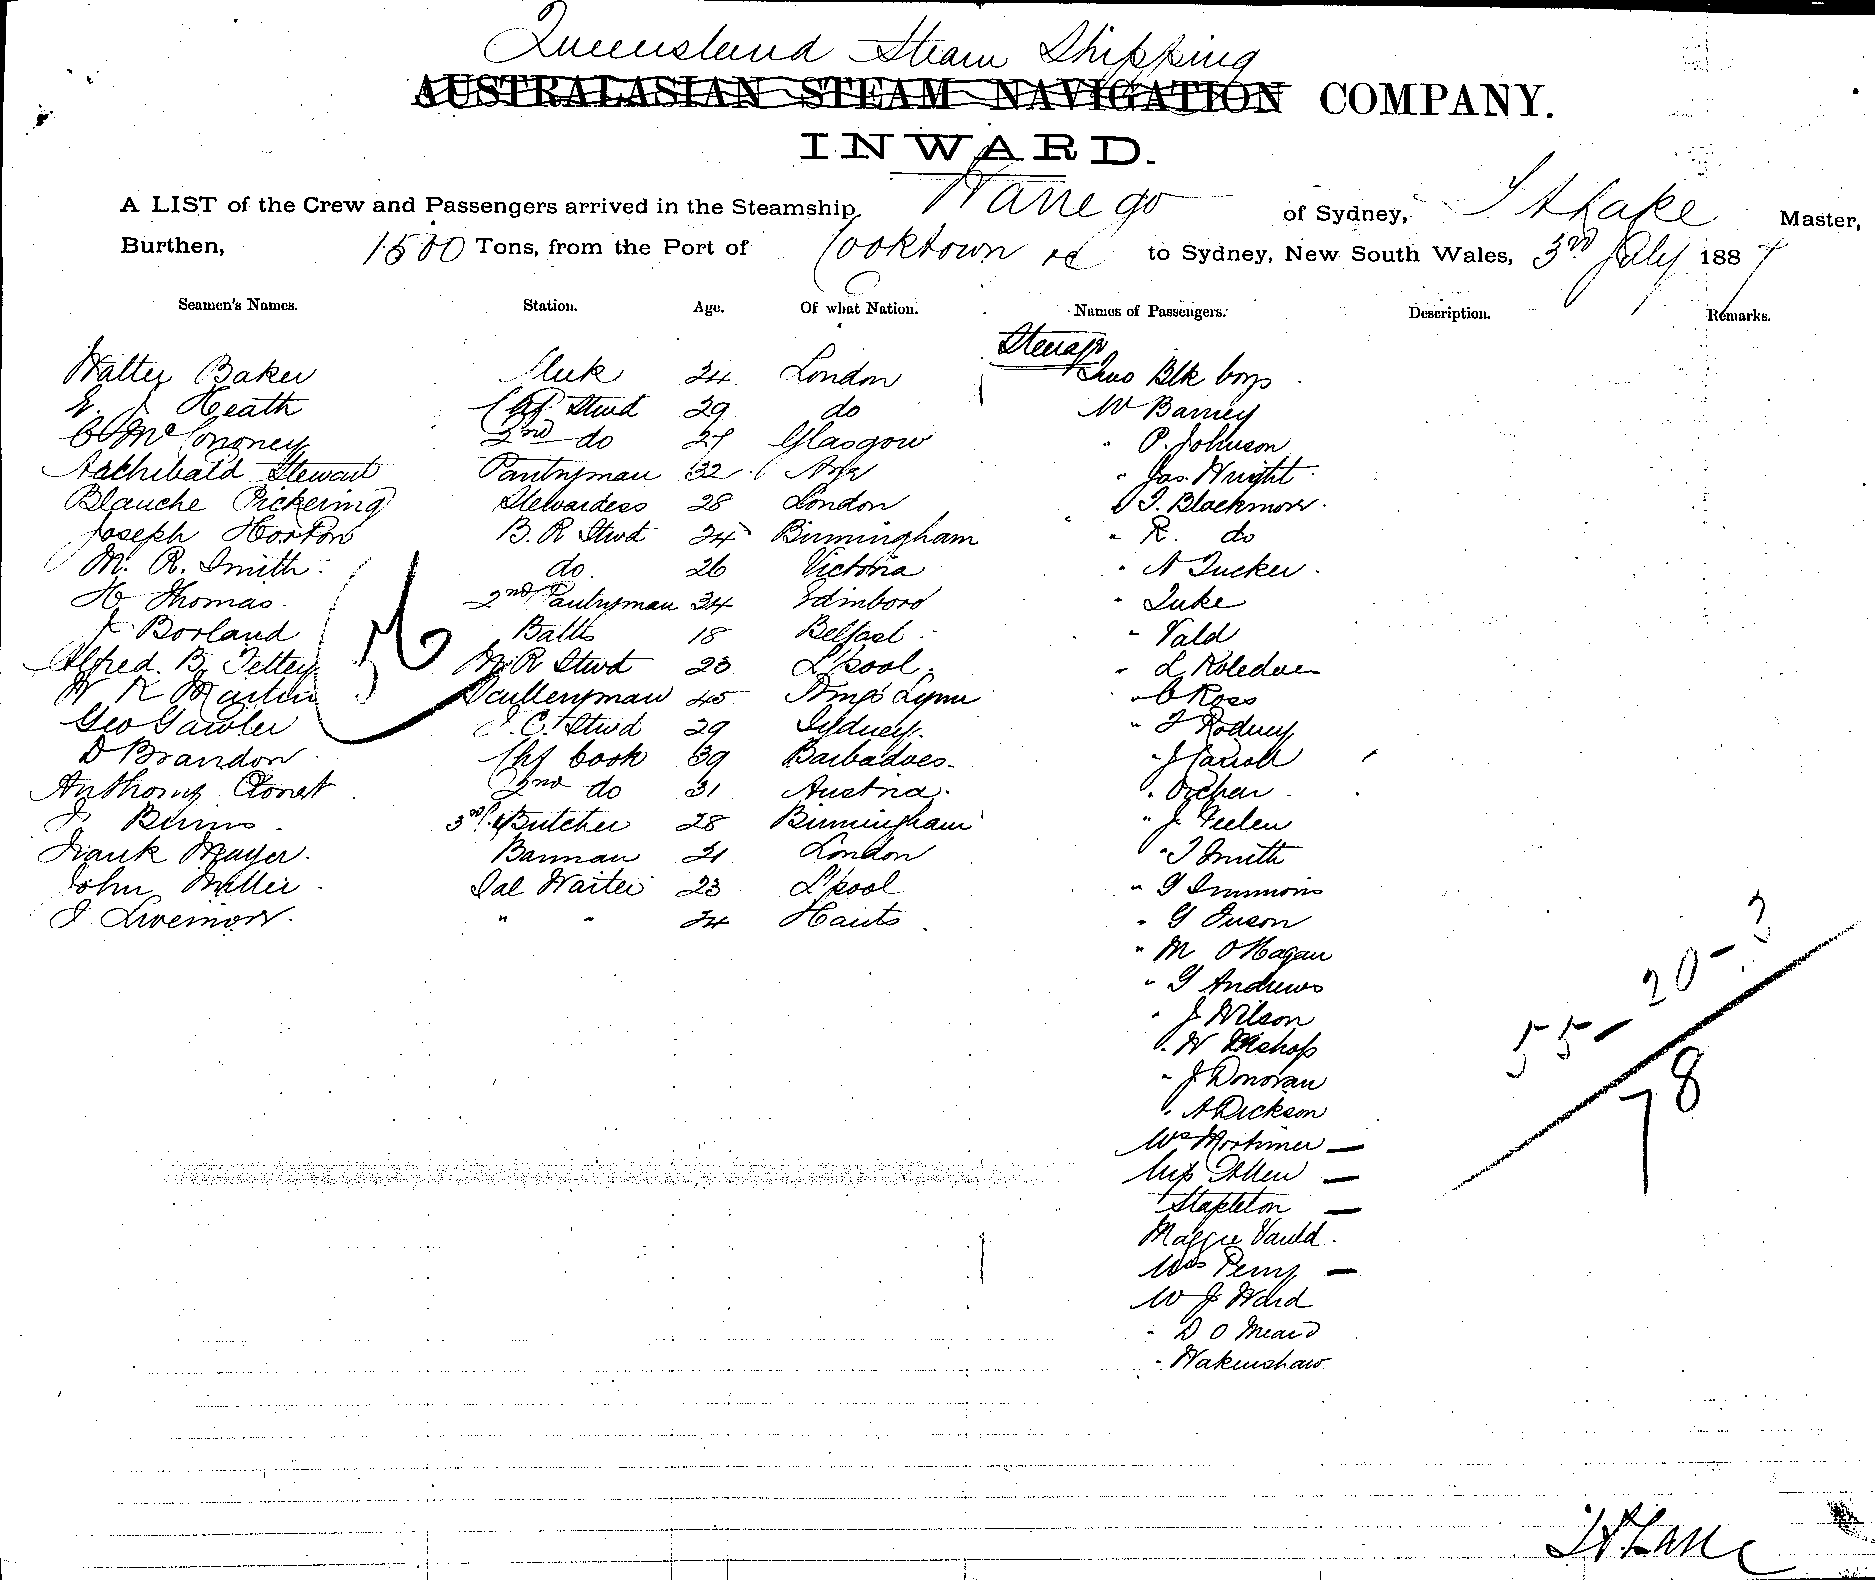 Queensland Steam Shipping
AUSTRALASIAN STEAM NAVIGATION COMPANY.
INWARD.
A LIST of the Crew and Passengers arrived in the Steamship Warrego of Sydney, T A Lake Master,
Burthen, 1500 Tons, from the Port of Cooktown &c to Sydney, New South Wales, 3rd July 1887
Seamen's Names. Station. Age. Of what Nation. Names of Passengers. Description. Remarks.
Steerage
Walter Baker 24 London Two Blk boys
E. J Heath Chf Stwd 29 do Mr Barney
2nd do 27 Glasgow " P. Johnson
Archibald Stewart Pantryman 32 Ayr " Jas. Wright
Blanche Pickering Stewardess 28 London " T. Blackmore
Joseph Horton B. R Stwd 24 Birmingham " R. do
M. R. Smith do. 26 Victoria " A Tucker
H Thomas 2nd Pantryman 34 Edinboro " Luke
J Borland Baths 18 Belfast " Vald
Alfred B. Tettey M. R Stwd 23 L'pool " L
W R Martin Sculleryman 45 King's Lynn " C Ross
Geo Gawler F. C. Stwd 29 Sydney " F Rodney
D Brandon Chf Cook 39 Barbadoes " J Carroll
Anthony 2nd do 31 Austria "
J Burns 3rd & Butcher 28 Birmingham " J Feelen
Frank Mayer Barman 21 London " T Smith
John Miller Sal Waiter 23 L'pool " G Simmons
J Livermore " " 24 Hants " G Tuson
" M O'Hagan
" G Andrews
" J Wilson
" W Bishop
" J Donovan
" A Dickson
Mrs Mortimer —
Miss Allen —
Stapleton —
Maggie Vauld
Mrs Perry —
Mr J Ward
" D O Meara
" Wakenshaw
55 - 20 - 3
78
T A Lake